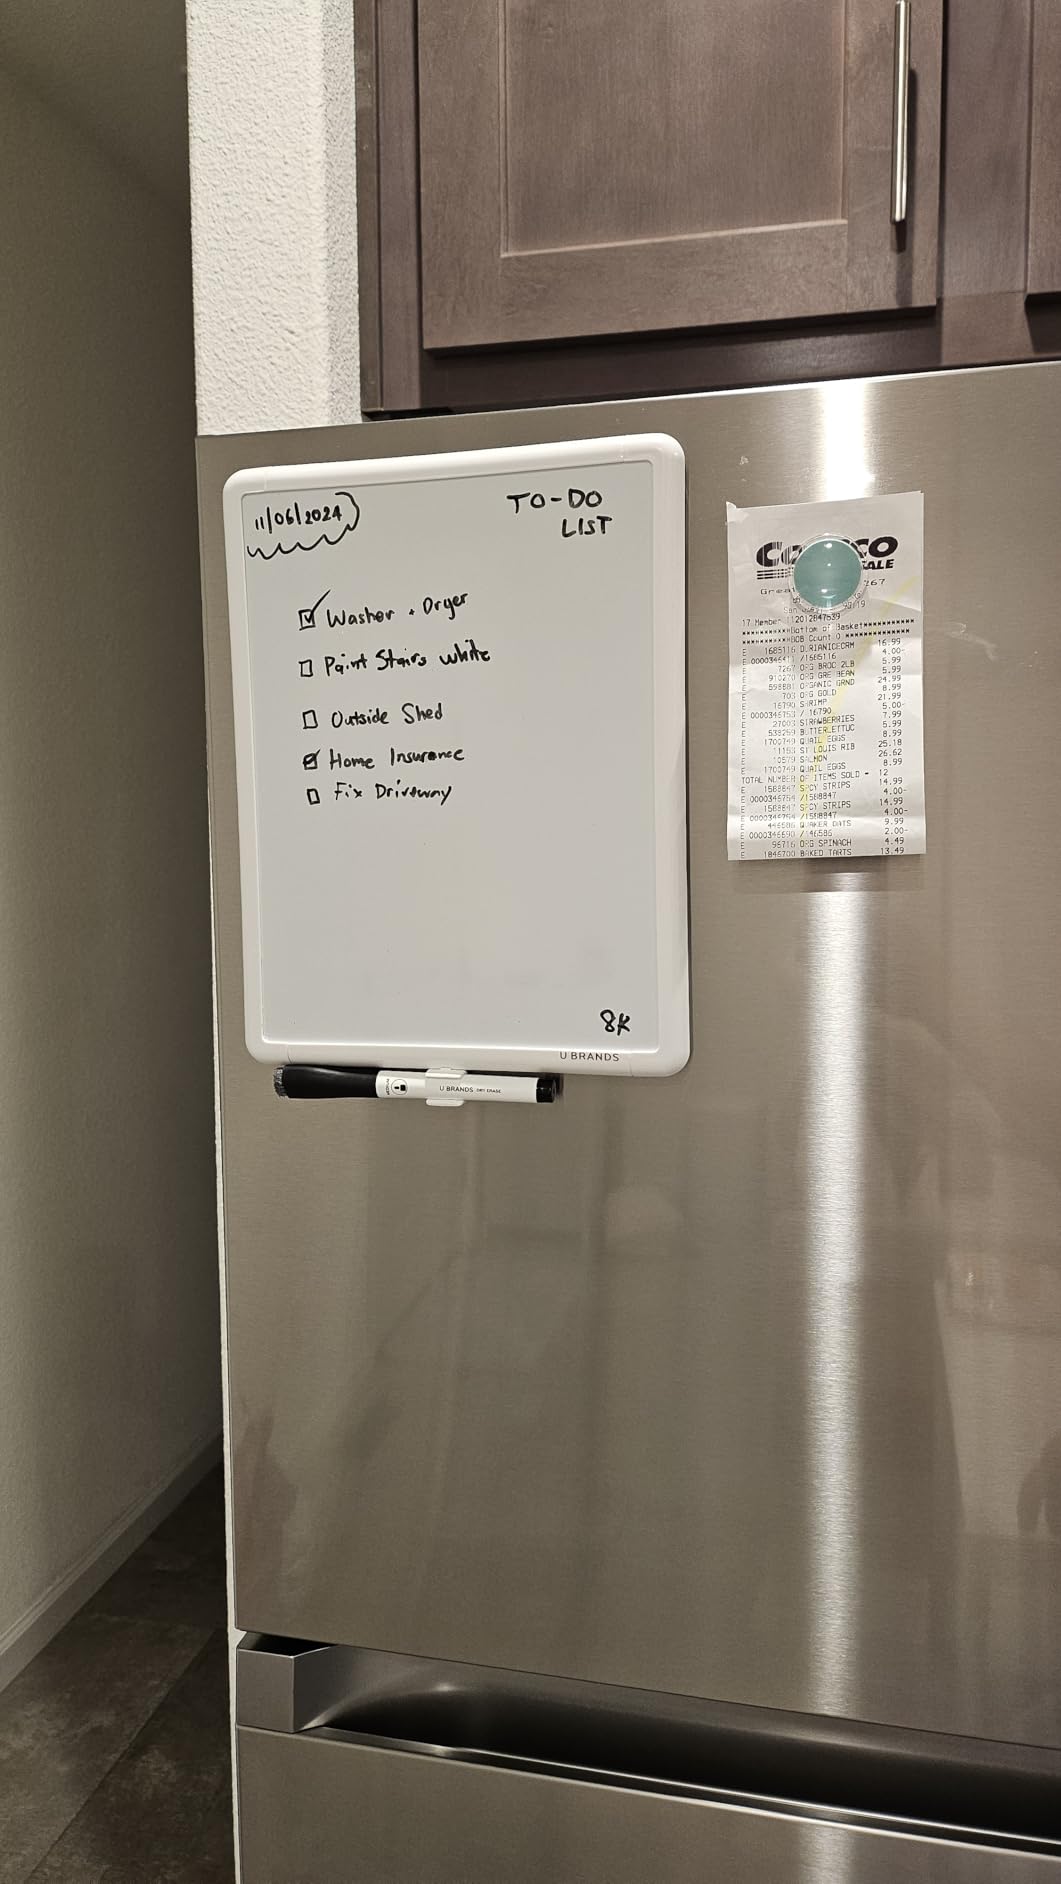 11/06/2024
TO-DO
LIST
Washer + Dryer
Paint Stairs white
Outside Shed
Home Insurance
Fix Driveway
8K
U BRANDS
U BRANDS DRY ERASE
CO CO
ALE
Grea 267
17 Member
**Bottom of Basket**
**BOB Count 0 **
E 1685116 DURIANICECRM 16.99
E 0000346411 /1685116 4.00-
7267 ORG BROC 2LB 5.99
910270 ORG GRE BEAN 5.99
598881 ORGANIC GRND 24.99
703 ORG GOLD 8.99
16790 SHRIMP 21.99
E 0000346753 / 16790 5.00-
27003 STRAWBERRIES 7.99
538259 BUTTERLETTUC 5.99
1700749 QUAIL EGGS 8.99
11153 ST LOUIS RIB 25.18
10579 SALMON 26.62
E 1700749 QUAIL EGGS 8.99
TOTAL NUMBER OF ITEMS SOLD = 12
E 1588847 SPCY STRIPS 14.99
E 0000346754 /1588847 4.00-
E 1588847 SPCY STRIPS 14.99
E 0000346754 /1588847 4.00-
E 446586 QUAKER OATS 9.99
E 0000346690 / 2.00-
E 96716 ORG SPINACH 4.49
E 1846700 BAKED TARTS 13.49